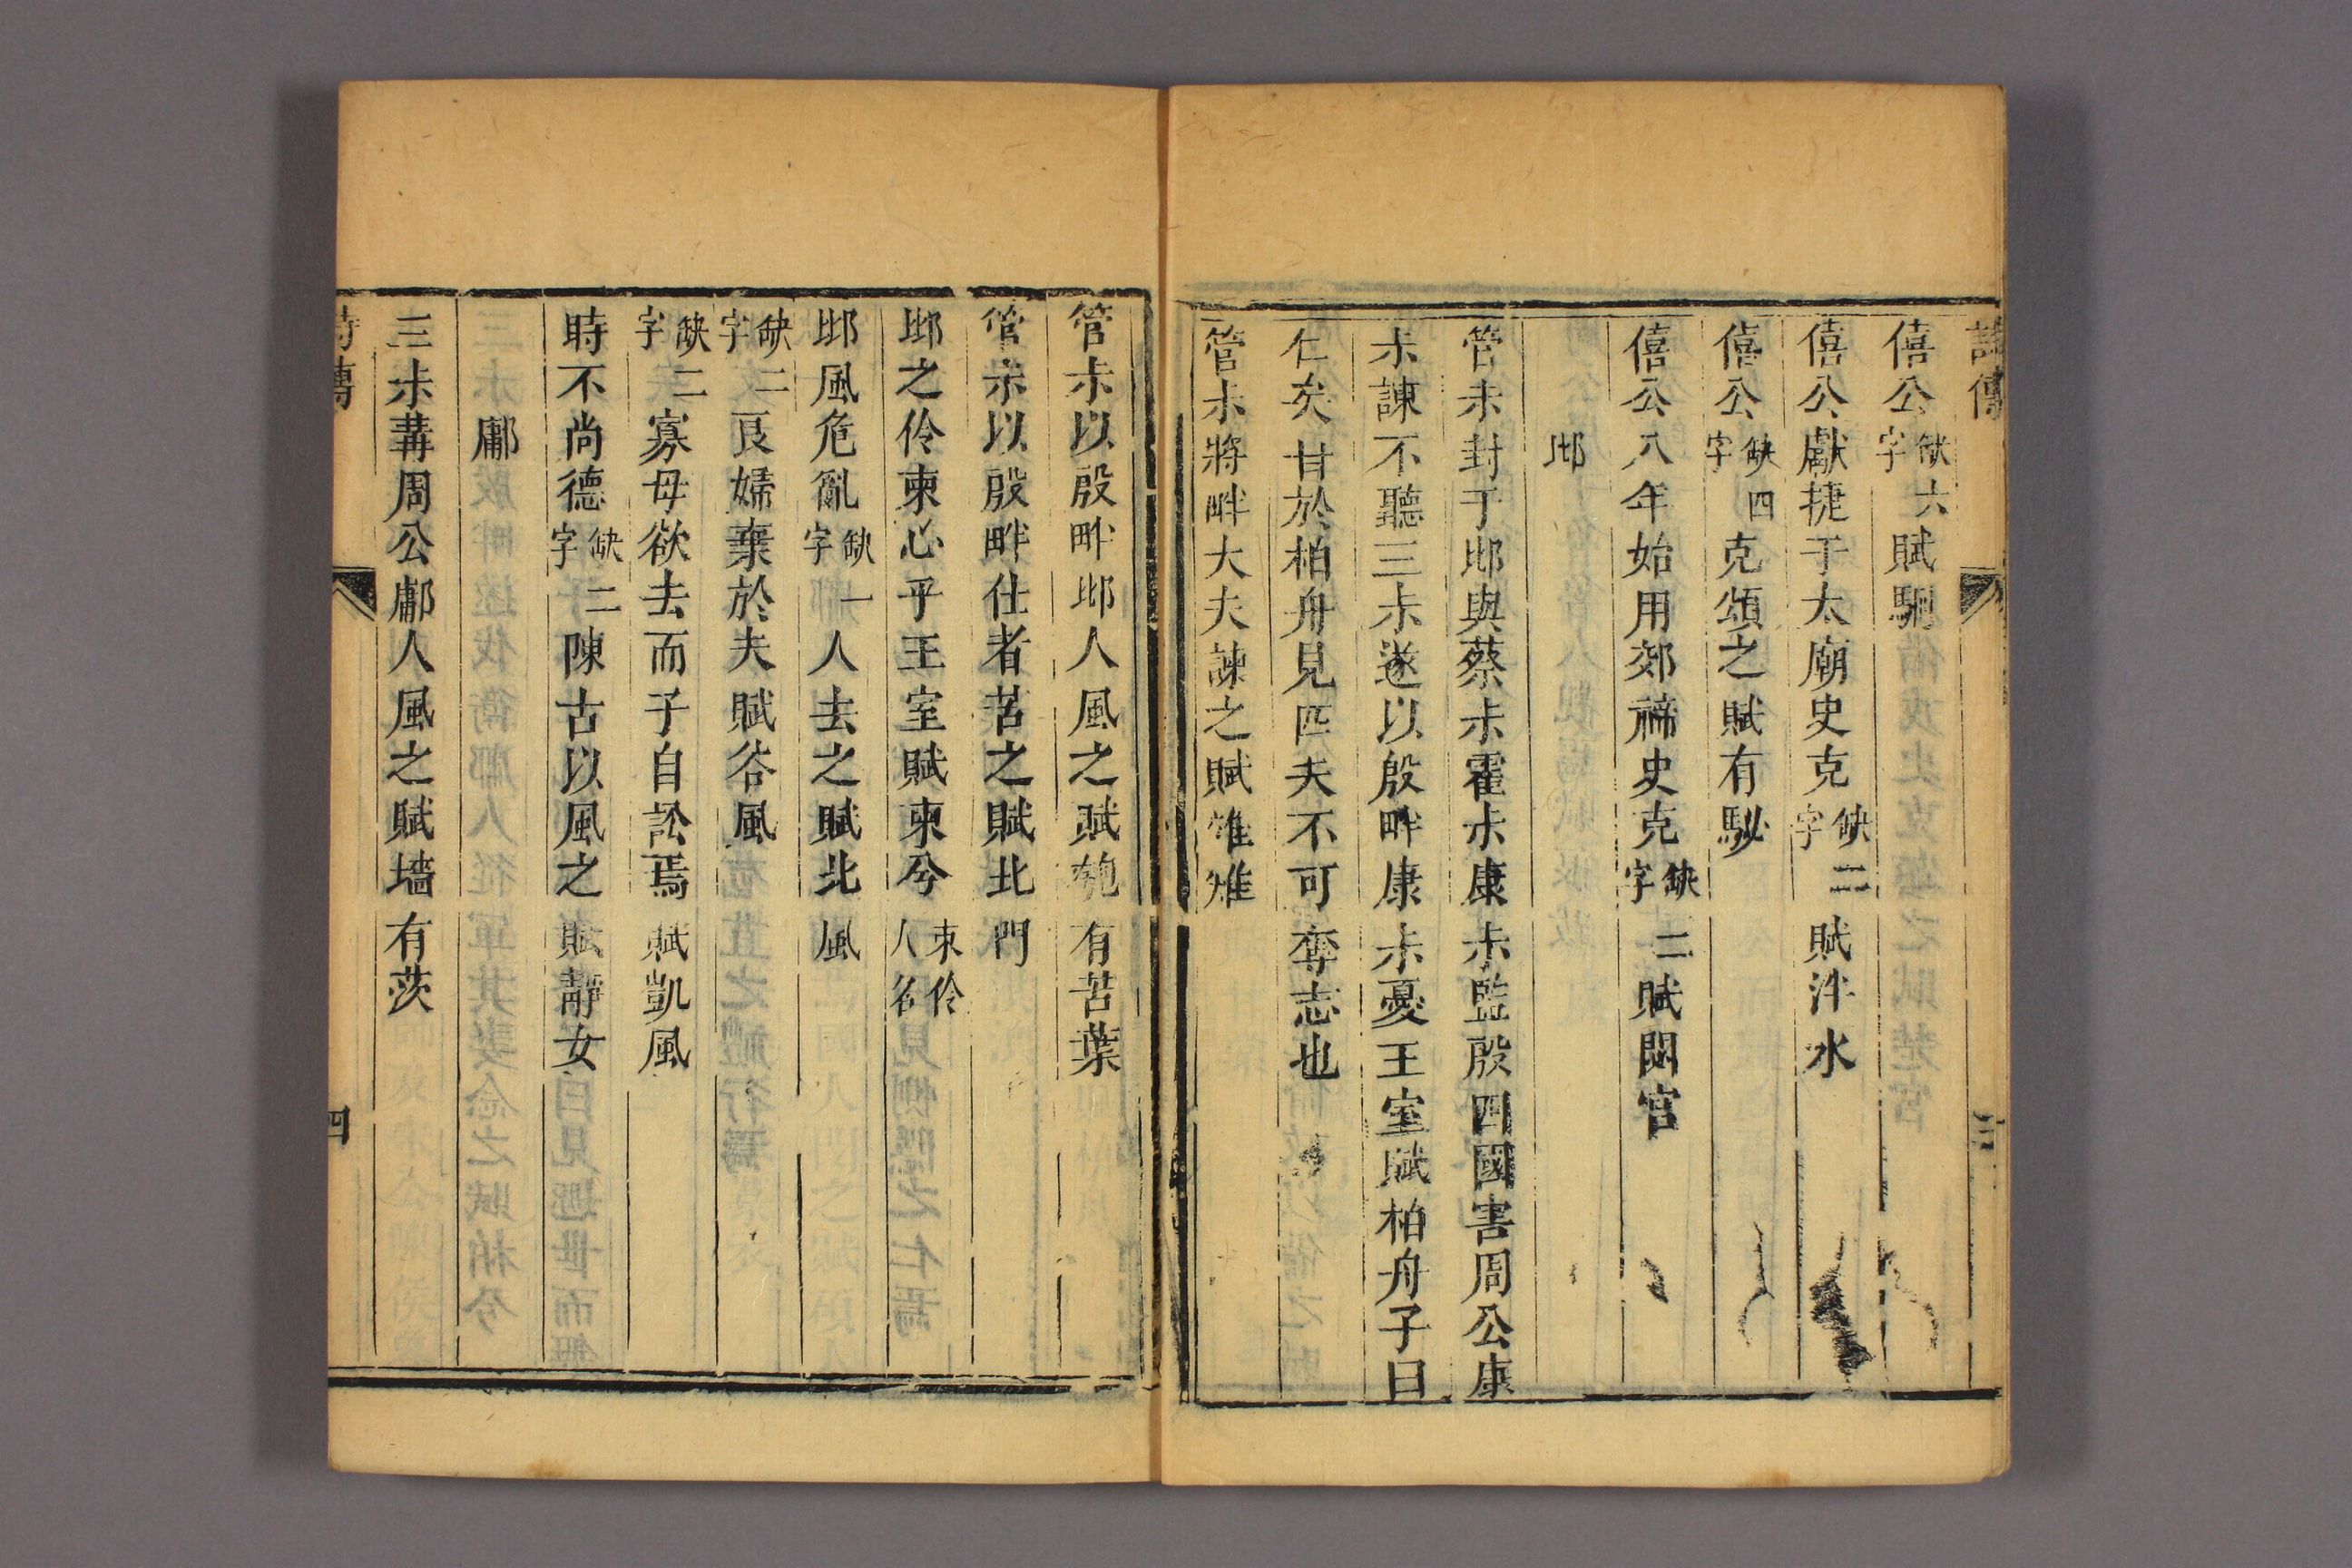 詩傳 三
僖公缺六字賦駉
僖公獻捷于太廟史克缺二字賦泮水
僖公缺四字克頌之賦有駜
僖公八年始用郊禘史克缺二字賦閟宮
邶
管尗封于邶與蔡尗霍尗康尗監殷四國害周公康
尗諫不聽三尗遂以殷畔康尗憂王室賦柏舟子曰
仁矣甘於柏舟見匹夫不可奪志也
管尗將畔大夫諫之賦雄雉
管尗以殷畔邶人風之賦匏有苦葉
管尗以殷畔仕者苦之賦北門
邶之伶柬心乎王室賦柬兮柬伶人名
邶風危亂缺一字人去之賦北風
缺二字良婦棄於夫賦谷風
缺二字寡母欲去而子自訟焉賦凱風
時不尚德缺二字陳古以風之賦靜女
鄘
三尗冓周公鄘人風之賦墻有茨
詩傳 四